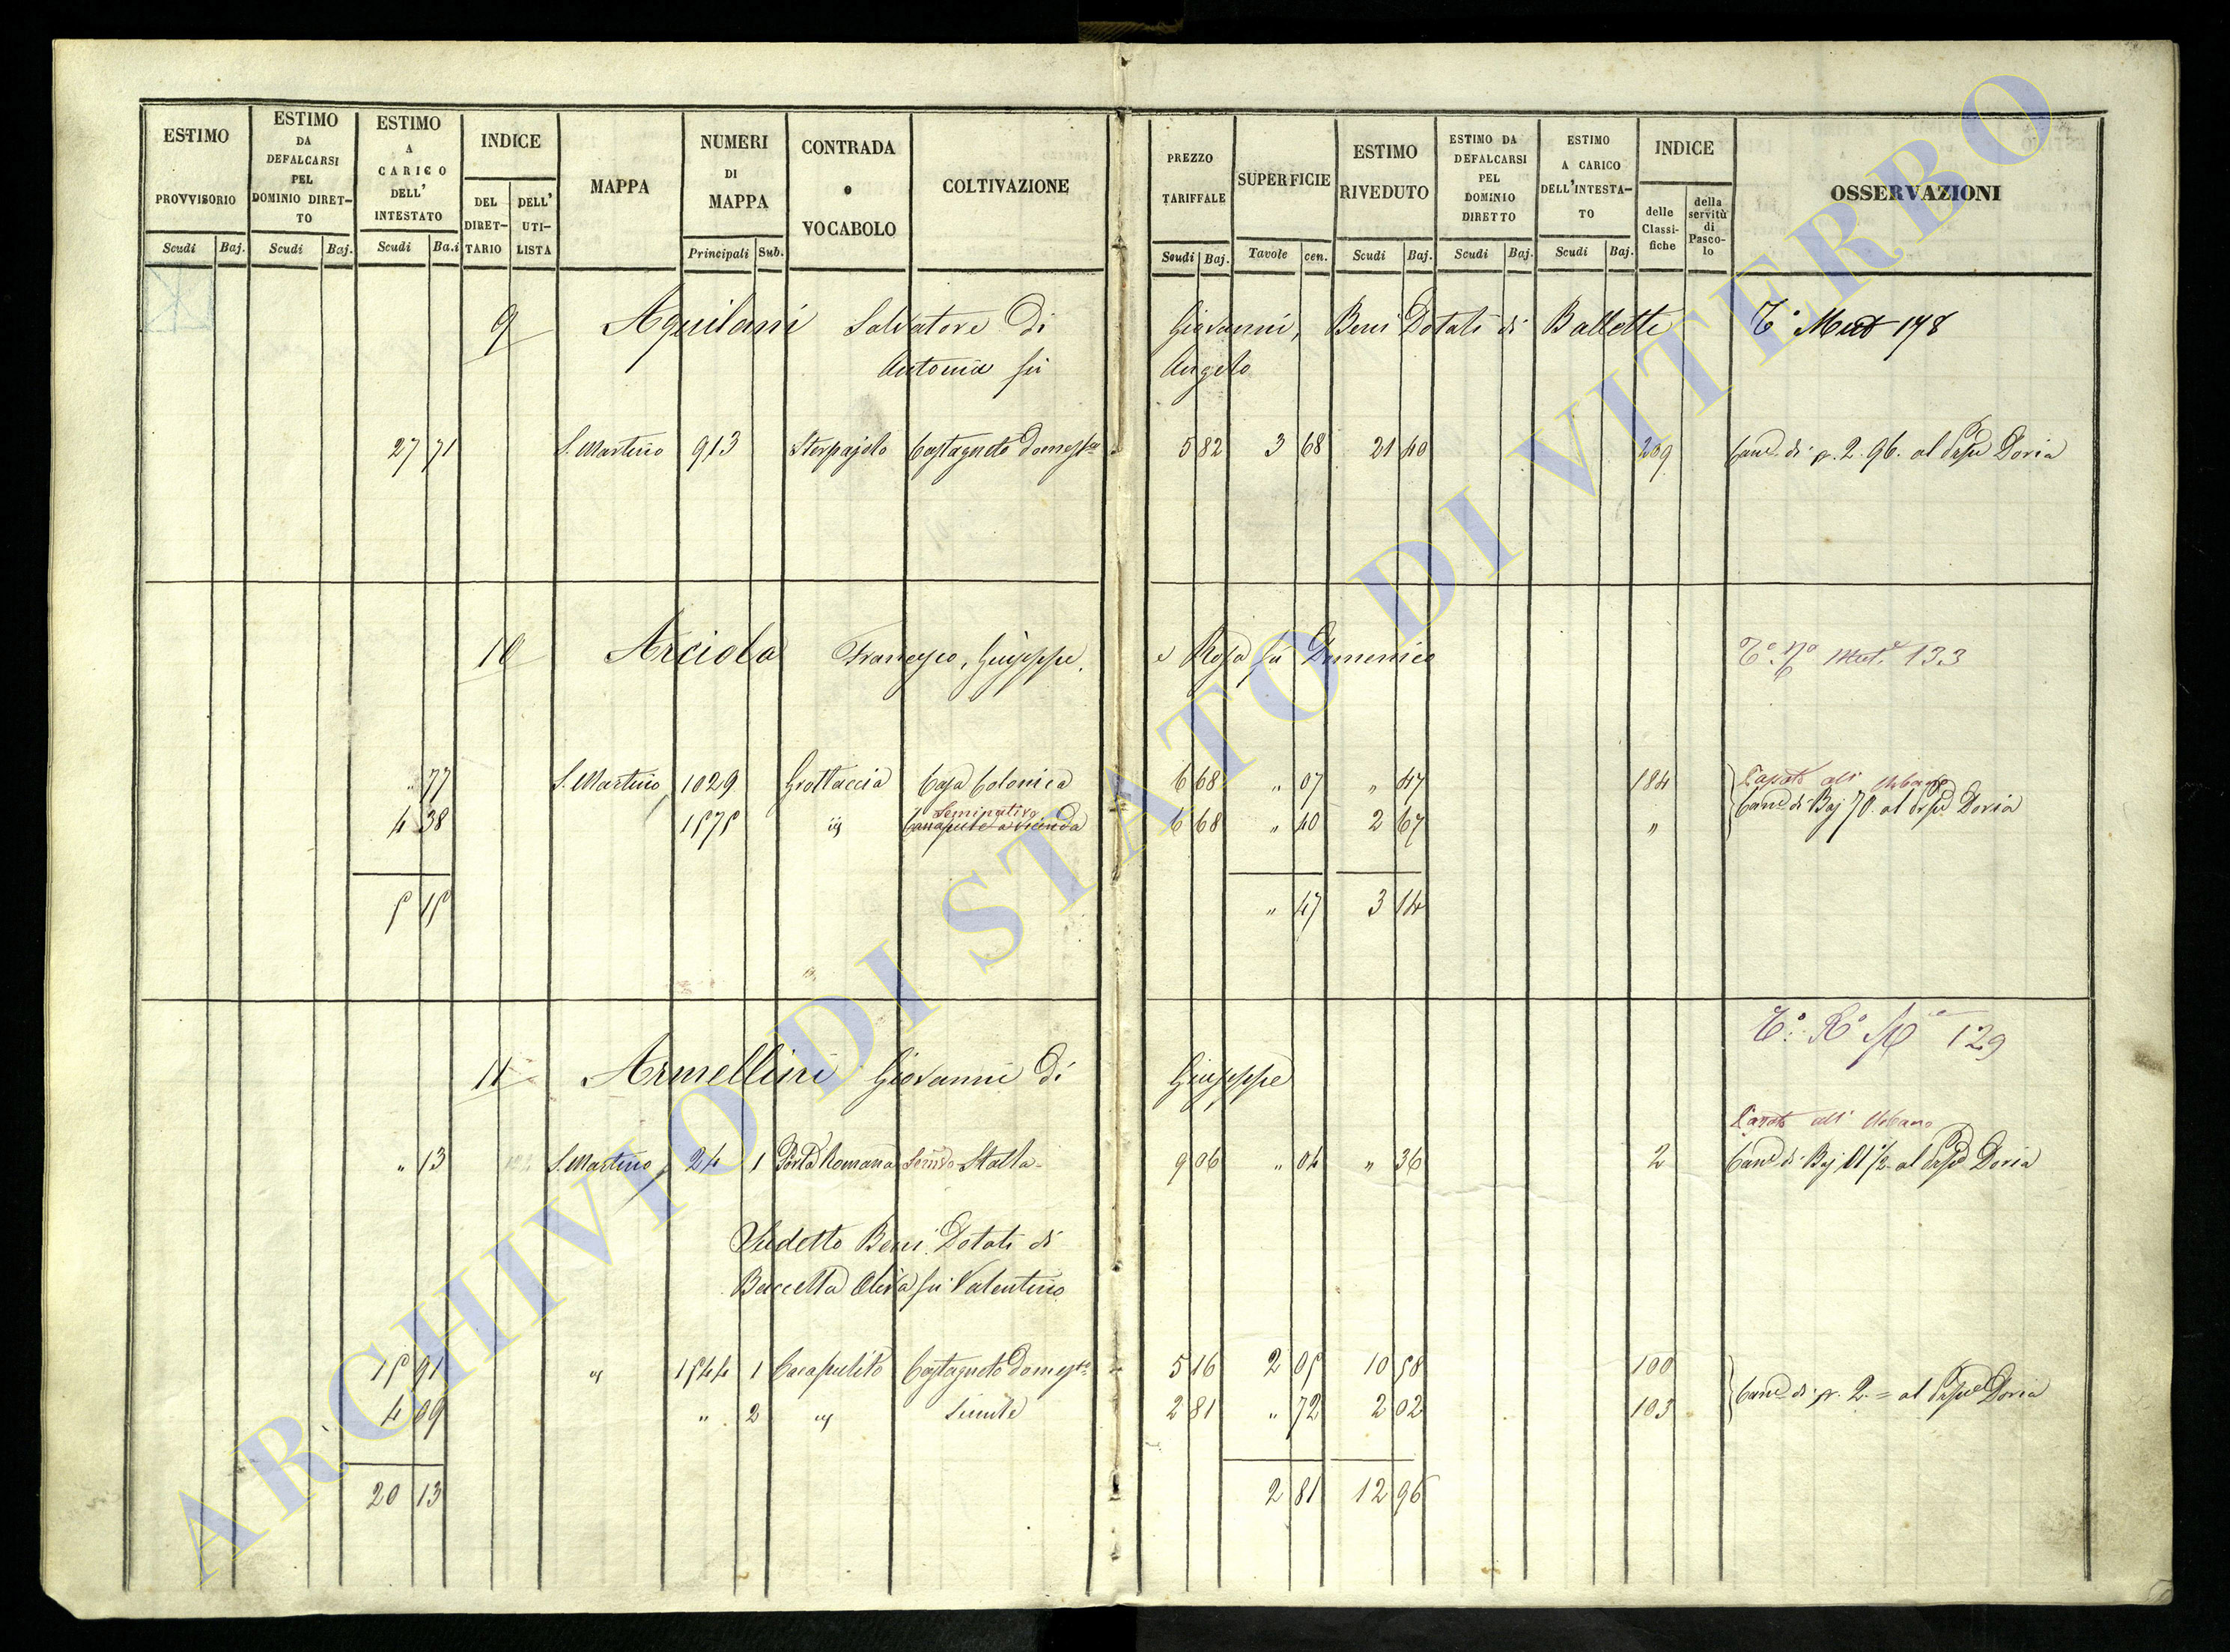 ESTIMO PROVVISORIO Scudi Baj.
ESTIMO DA DEFALCARSI PEL DOMINIO DIRET-TO Scudi Baj.
ESTIMO A CARICO DELL' INTESTATO Scudi Ba.i
INDICE DEL DIRET-TARIO DELL' UTI-LISTA
MAPPA
NUMERI DI MAPPA Principali Sub.
CONTRADA o VOCABOLO
COLTIVAZIONE
PREZZO TARIFFALE Scudi Baj.
SUPERFICIE Tavole cen.
ESTIMO RIVEDUTO Scudi Baj.
ESTIMO DA DEFALCARSI PEL DOMINIO DIRETTO Scudi Baj.
ESTIMO A CARICO DELL'INTESTA-TO Scudi Baj.
INDICE delle Classi-fiche della servitù di Pasco-lo
OSSERVAZIONI
9 Aquilani Salvatore di Giovanni, Beni Dotali di Balletti
Antonia fu Angelo
27 71 S. Martino 913 Sterpajolo Castagneto Domestco 5 82 3 68 21 40 209 Cane di p. 2. 96. al Doria
10 Arciola Francesco, Giuseppe, e Rosa fu Domenico 133
77 S. Martino 1029 Grottaccia Casa Colonica 6 68 " 07 " 47 184 Passato all' Urbano
Seminativo
4 38 1575 Canapule a vicenda 6 68 " 40 2 67 " Cane di Baj 70. al Doria
5 15 " 47 3 14
129
11 Armellini Giovanni di Giuseppe
Passato all' Urbano
" 13 S. Martino 24 1 Porta Romana Stalla 9 06 " 04 " 36 2 Cane di Baj 11 1/2 al Doria
Sudetto Beni Dotali di
Buccella Oliva fu Valentino
15 91 " 1544 1 Cacapulito Castagneto Domestco 5 16 2 05 10 58 100
4 09 " 2 " Simile 2 81 " 72 2 02 103 Cane di p. 2. = al Doria
20 13 2 81 12 96
ARCHIVIO DI STATO DI VITERBO